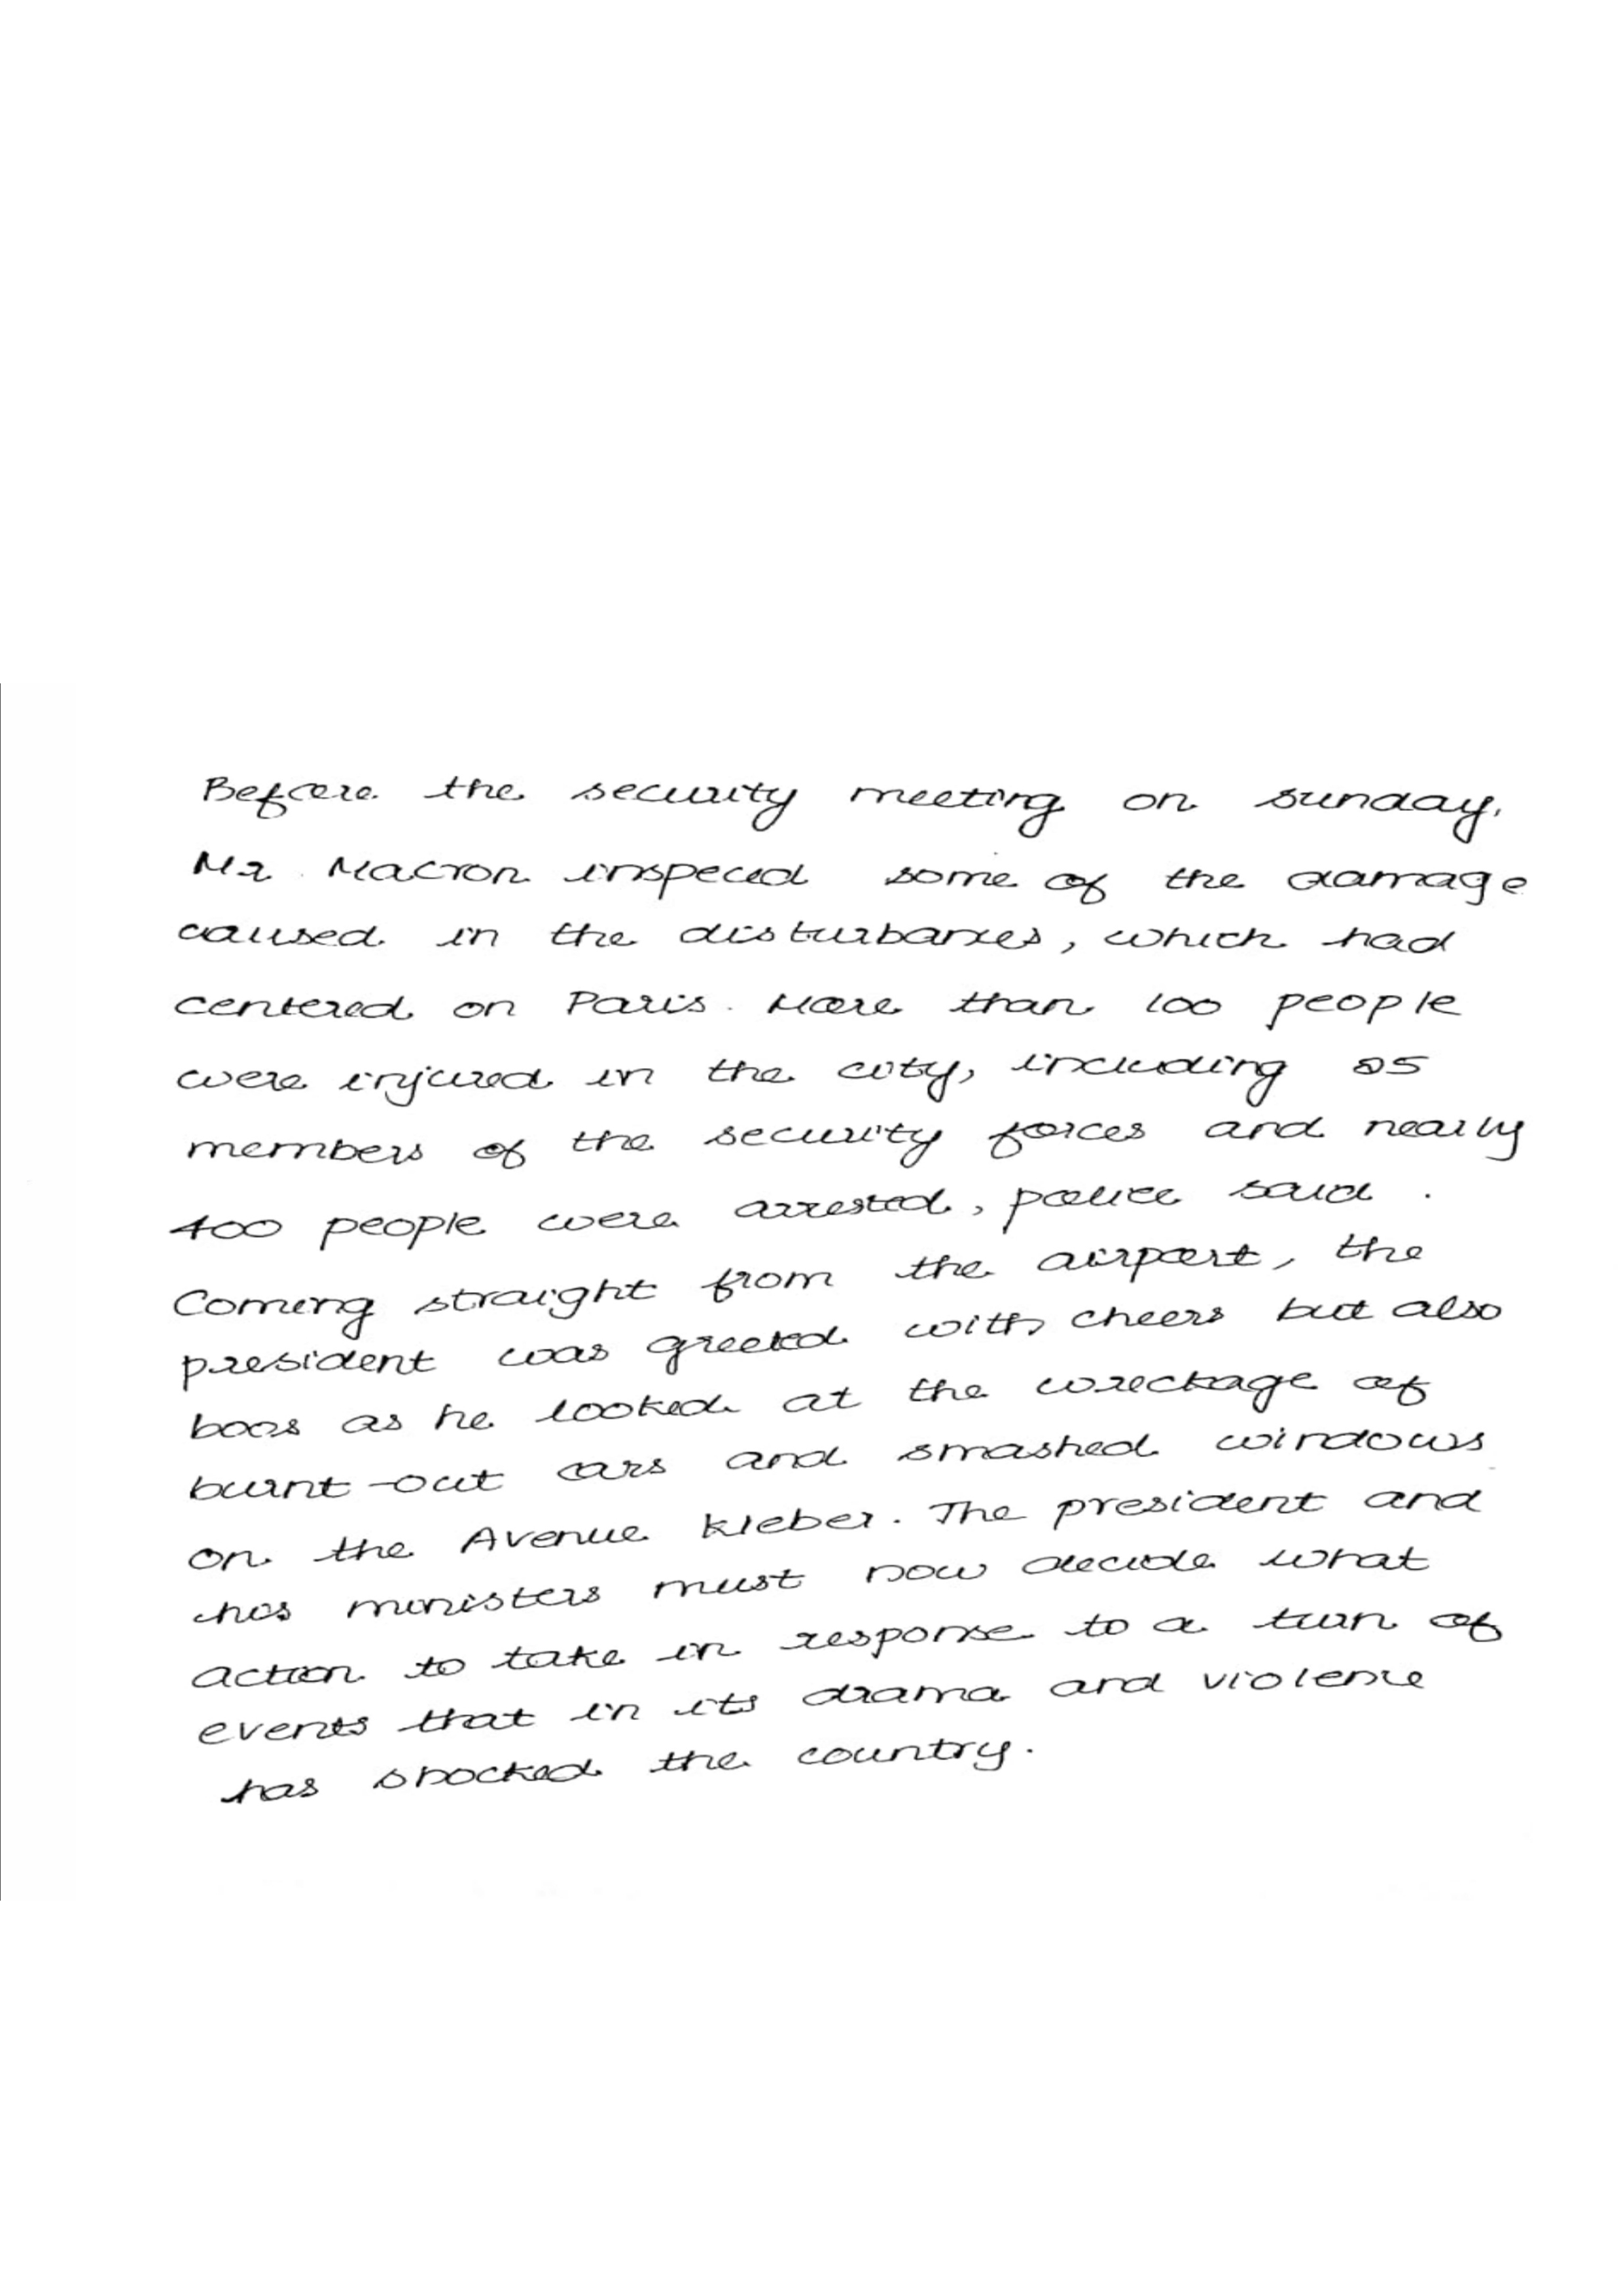 Before the security meeting on sunday,
Mr. Macron inspeced some of the damage
caused in the disturbances, which had
centered on Paris. More than 100 people
were injured in the city, including 25
members of the security forces and nearly
400 people were arrested, police said.
Coming straight from the airport, the
president was greeted with cheers but also
boos as he looked at the wreckage of
burnt-out cars and smashed windows
on the Avenue Kleber. The president and
his ministers must now decide what
action to take in response to a turn of
events that in its drama and violence
has shocked the country.